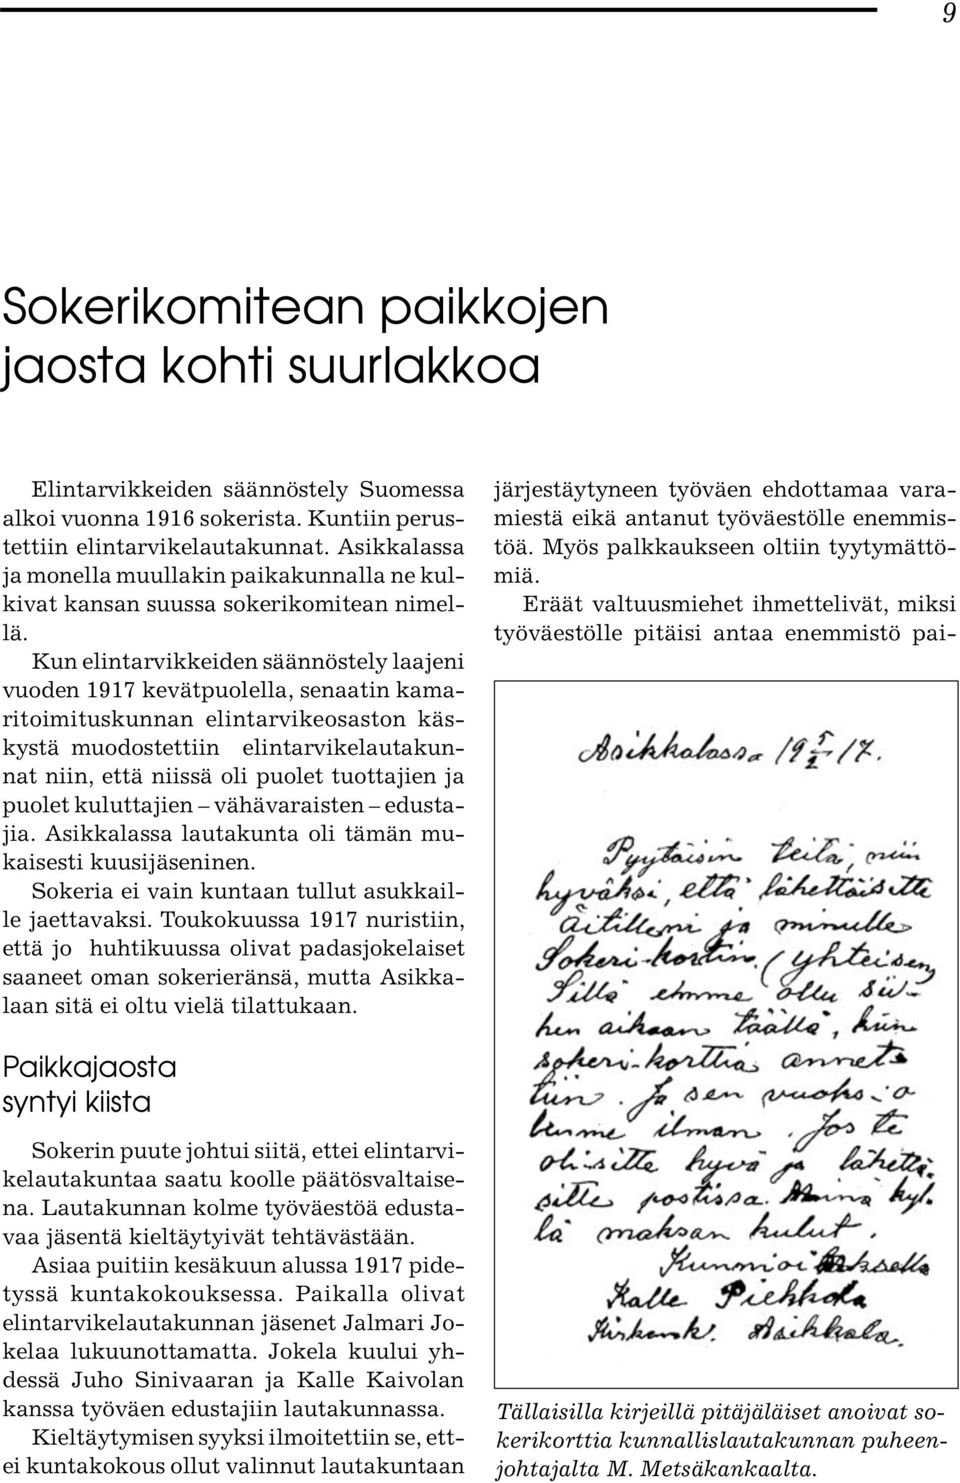 9
Sokerikomitean paikkojen
jaosta kohti suurlakkoa
Elintarvikkeiden säännöstely Suomessa
alkoi vuonna 1916 sokerista. Kuntiin perus-
tettiin elintarvikelautakunnat. Asikkalassa
ja monella muullakin paikakunnalla ne kul-
kivat kansan suussa sokerikomitean nimel-
lä.
Kun elintarvikkeiden säännöstely laajeni
vuoden 1917 kevätpuolella, senaatin kama-
ritoimituskunnan elintarvikeosaston käs-
kystä muodostettiin elintarvikelautakun-
nat niin, että niissä oli puolet tuottajien ja
puolet kuluttajien – vähävaraisten – edusta-
jia. Asikkalassa lautakunta oli tämän mu-
kaisesti kuusijäseninen.
Sokeria ei vain kuntaan tullut asukkail-
le jaettavaksi. Toukokuussa 1917 nuristiin,
että jo huhtikuussa olivat padasjokelaiset
saaneet oman sokerieränsä, mutta Asikka-
laan sitä ei oltu vielä tilattukaan.
Paikkajaosta
syntyi kiista
Sokerin puute johtui siitä, ettei elintarvi-
kelautakuntaa saatu koolle päätösvaltaise-
na. Lautakunnan kolme työväestöä edusta-
vaa jäsentä kieltäytyivät tehtävästään.
Asiaa puitiin kesäkuun alussa 1917 pide-
tyssä kuntakokouksessa. Paikalla olivat
elintarvikelautakunnan jäsenet Jalmari Jo-
kelaa lukuunottamatta. Jokela kuului yh-
dessä Juho Sinivaaran ja Kalle Kaivolan
kanssa työväen edustajiin lautakunnassa.
Kieltäytymisen syyksi ilmoitettiin se, ett-
ei kuntakokous ollut valinnut lautakuntaan
järjestäytyneen työväen ehdottamaa vara-
miestä eikä antanut työväestölle enemmis-
töä. Myös palkkaukseen oltiin tyytymättö-
miä.
Eräät valtuusmiehet ihmettelivät, miksi
työväestölle pitäisi antaa enemmistö pai-
Asikkalassa 19 5/2 17.
Pyytäisin teitä, niin
hyväksi, että lähettäisitte
Äitilleni ja minulle
Sokeri-kortin. (yhteisen)
Sillä emme ollu sii-
hen aikaan täällä, kun
sokeri-korttia annet-
tiin. Ja sen vuoksi o
lemme ilman. Jos te
olisitte hyvä ja lähettä-
sitte postissa. Minä kyl-
lä maksan kulut.
Kunnioituksella
Kalle Piekkola
Kirkonk. Asikkala.
Tällaisilla kirjeillä pitäjäläiset anoivat so-
kerikorttia kunnallislautakunnan puheen-
johtajalta M. Metsäkankaalta.